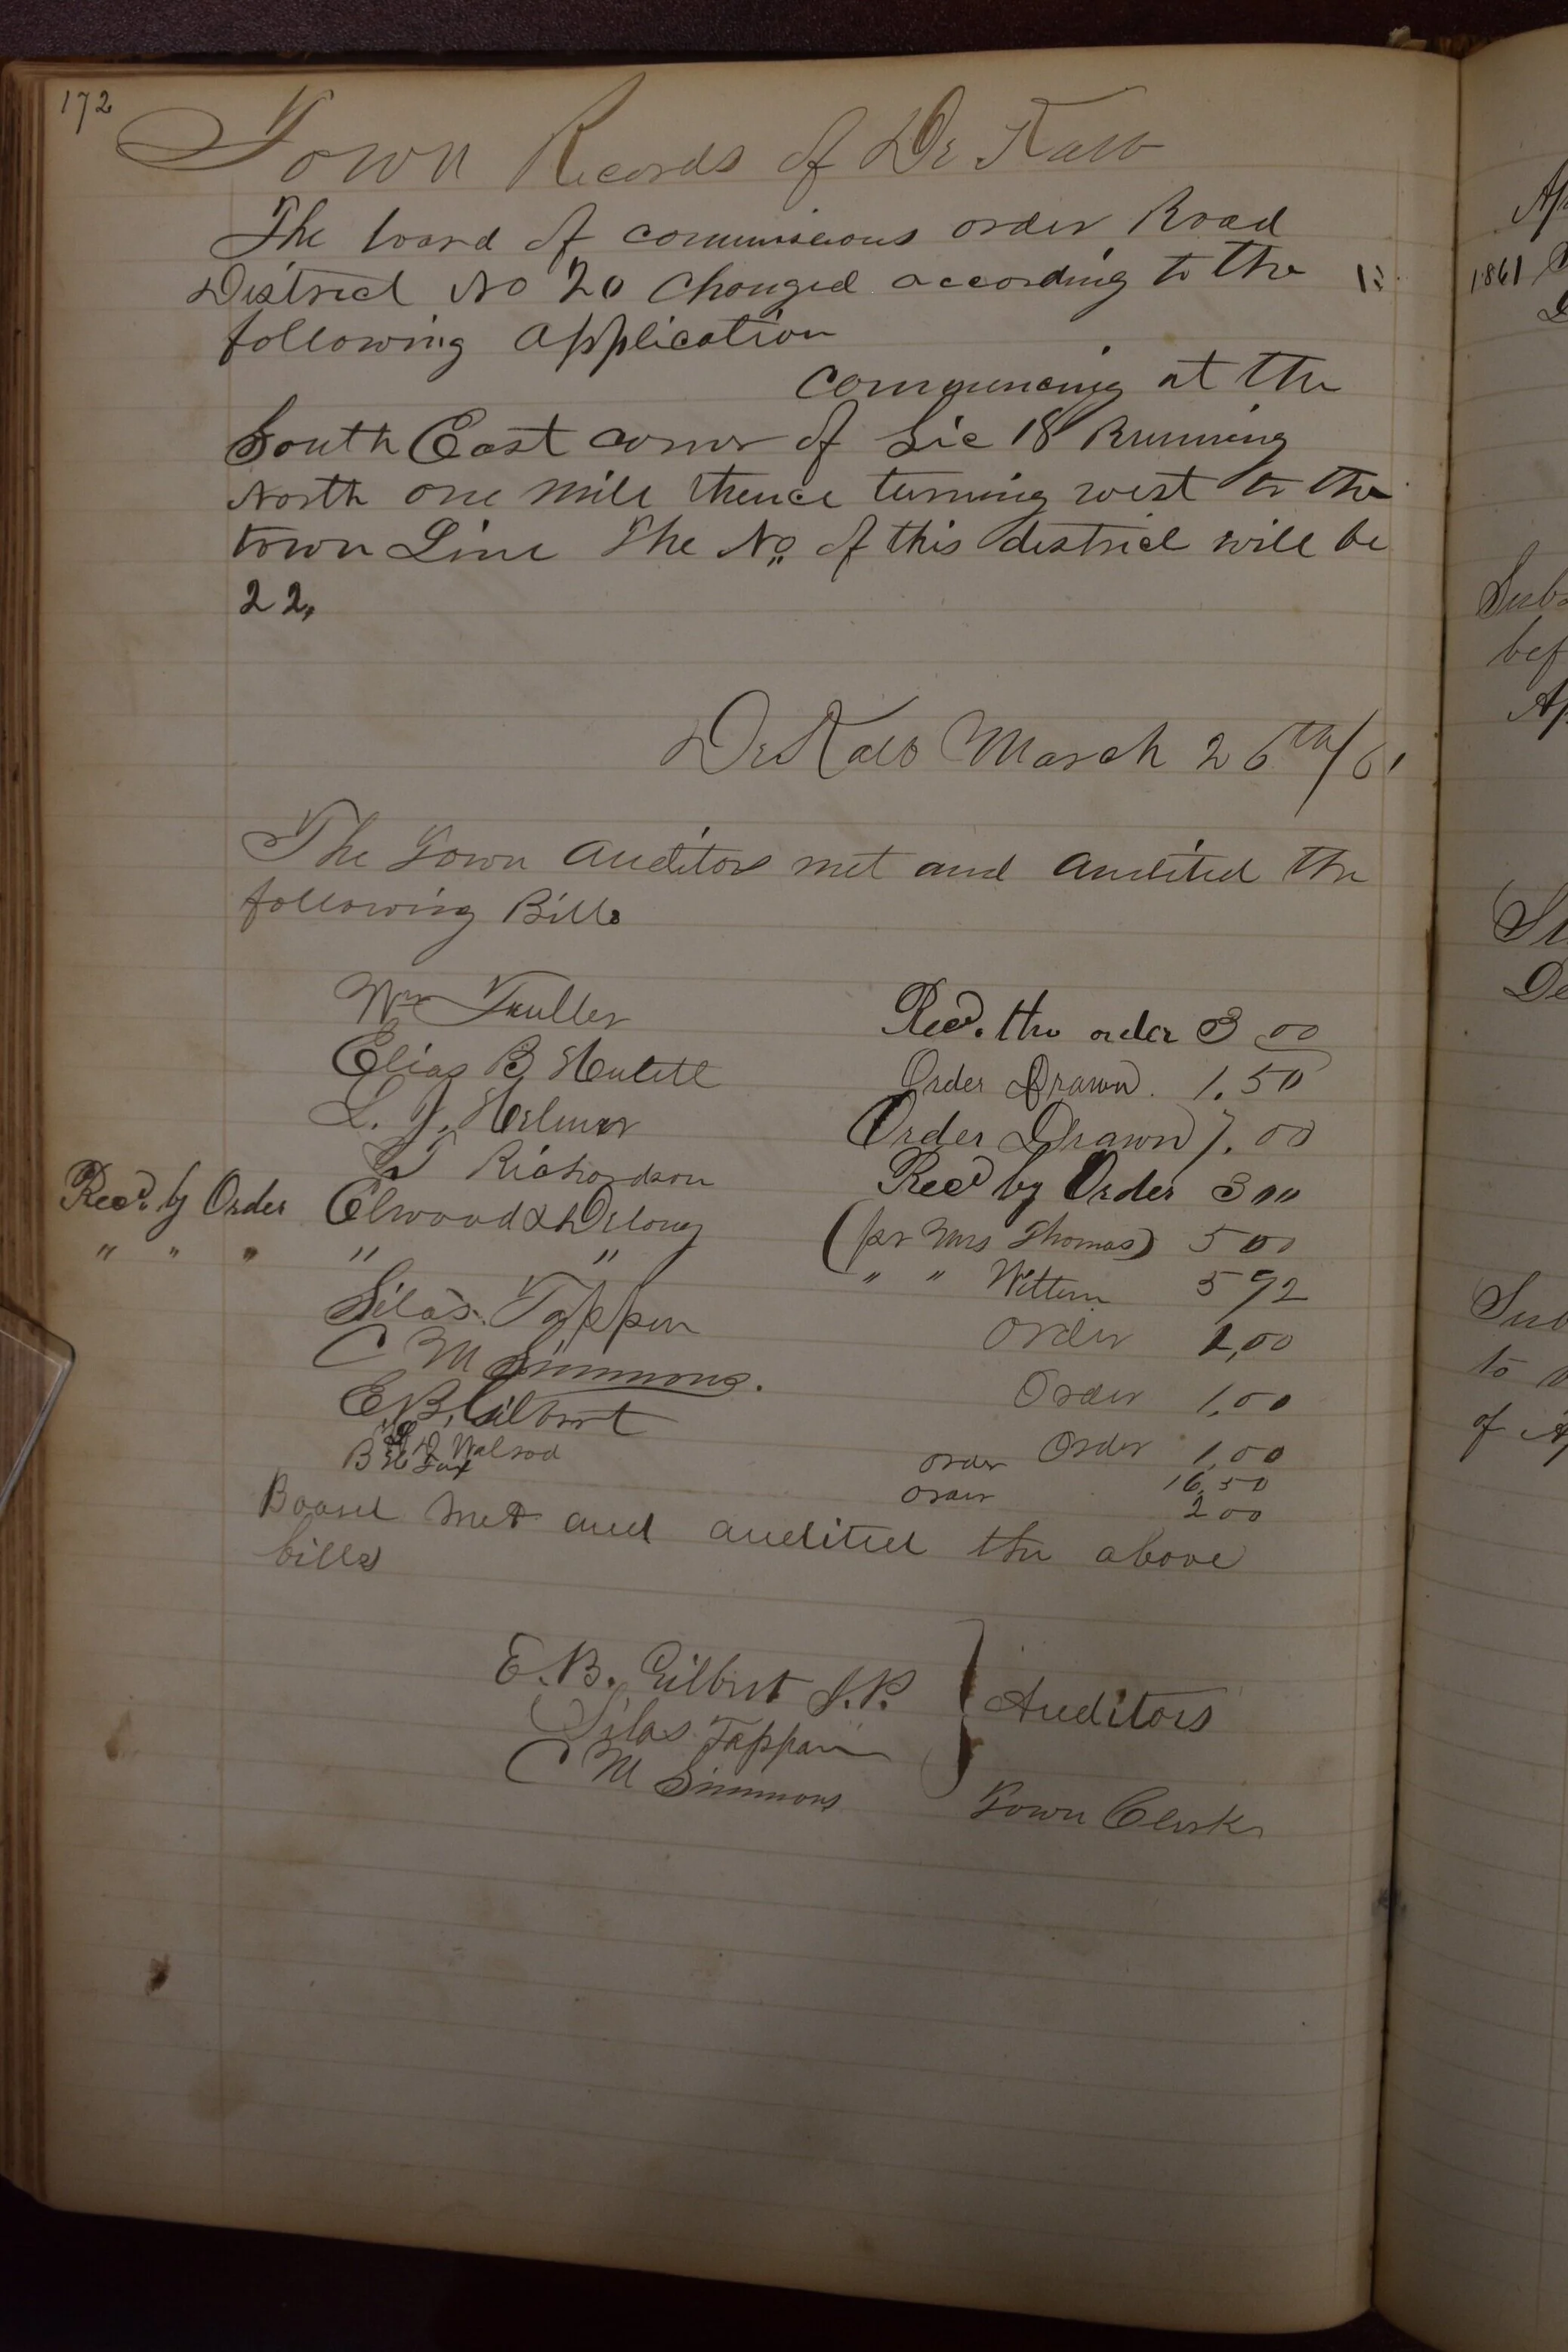 172
Town Records of De Kalb
The board of commissions order Road
District No 20 Changed according to the
following application
commencing at the
South East corner of Sec 18 Running
North one mile thence turning west to the
town Line The No of this district will be
22,
DeKalb March 26th/61
The Town Auditors met and audited the
following Bills
Wm Fuller Recd. the order 3 00
Elias B Hulett Order Drawn. 1.50
L. J. Helmer Order Drawn 7.00
Richardson Recd by Order 3 00
Recd. by Order Elwood & Delong (pr Mrs Thomas) 5 00
" " " " " " " Wittem 5 92
Silas Tappen Order 1,00
C M Simmons. Order 1,00
E,B, Gilbert Order 1,00
Walrod order 16,50
B H Fax order 2 00
Board met and audited the above
bills
E. B. Gilbert J.P.
Silas Tappan
C M Simmons
Auditors
Town Clerk
1861
Subs
bef
Ap
De
Sub
to
of